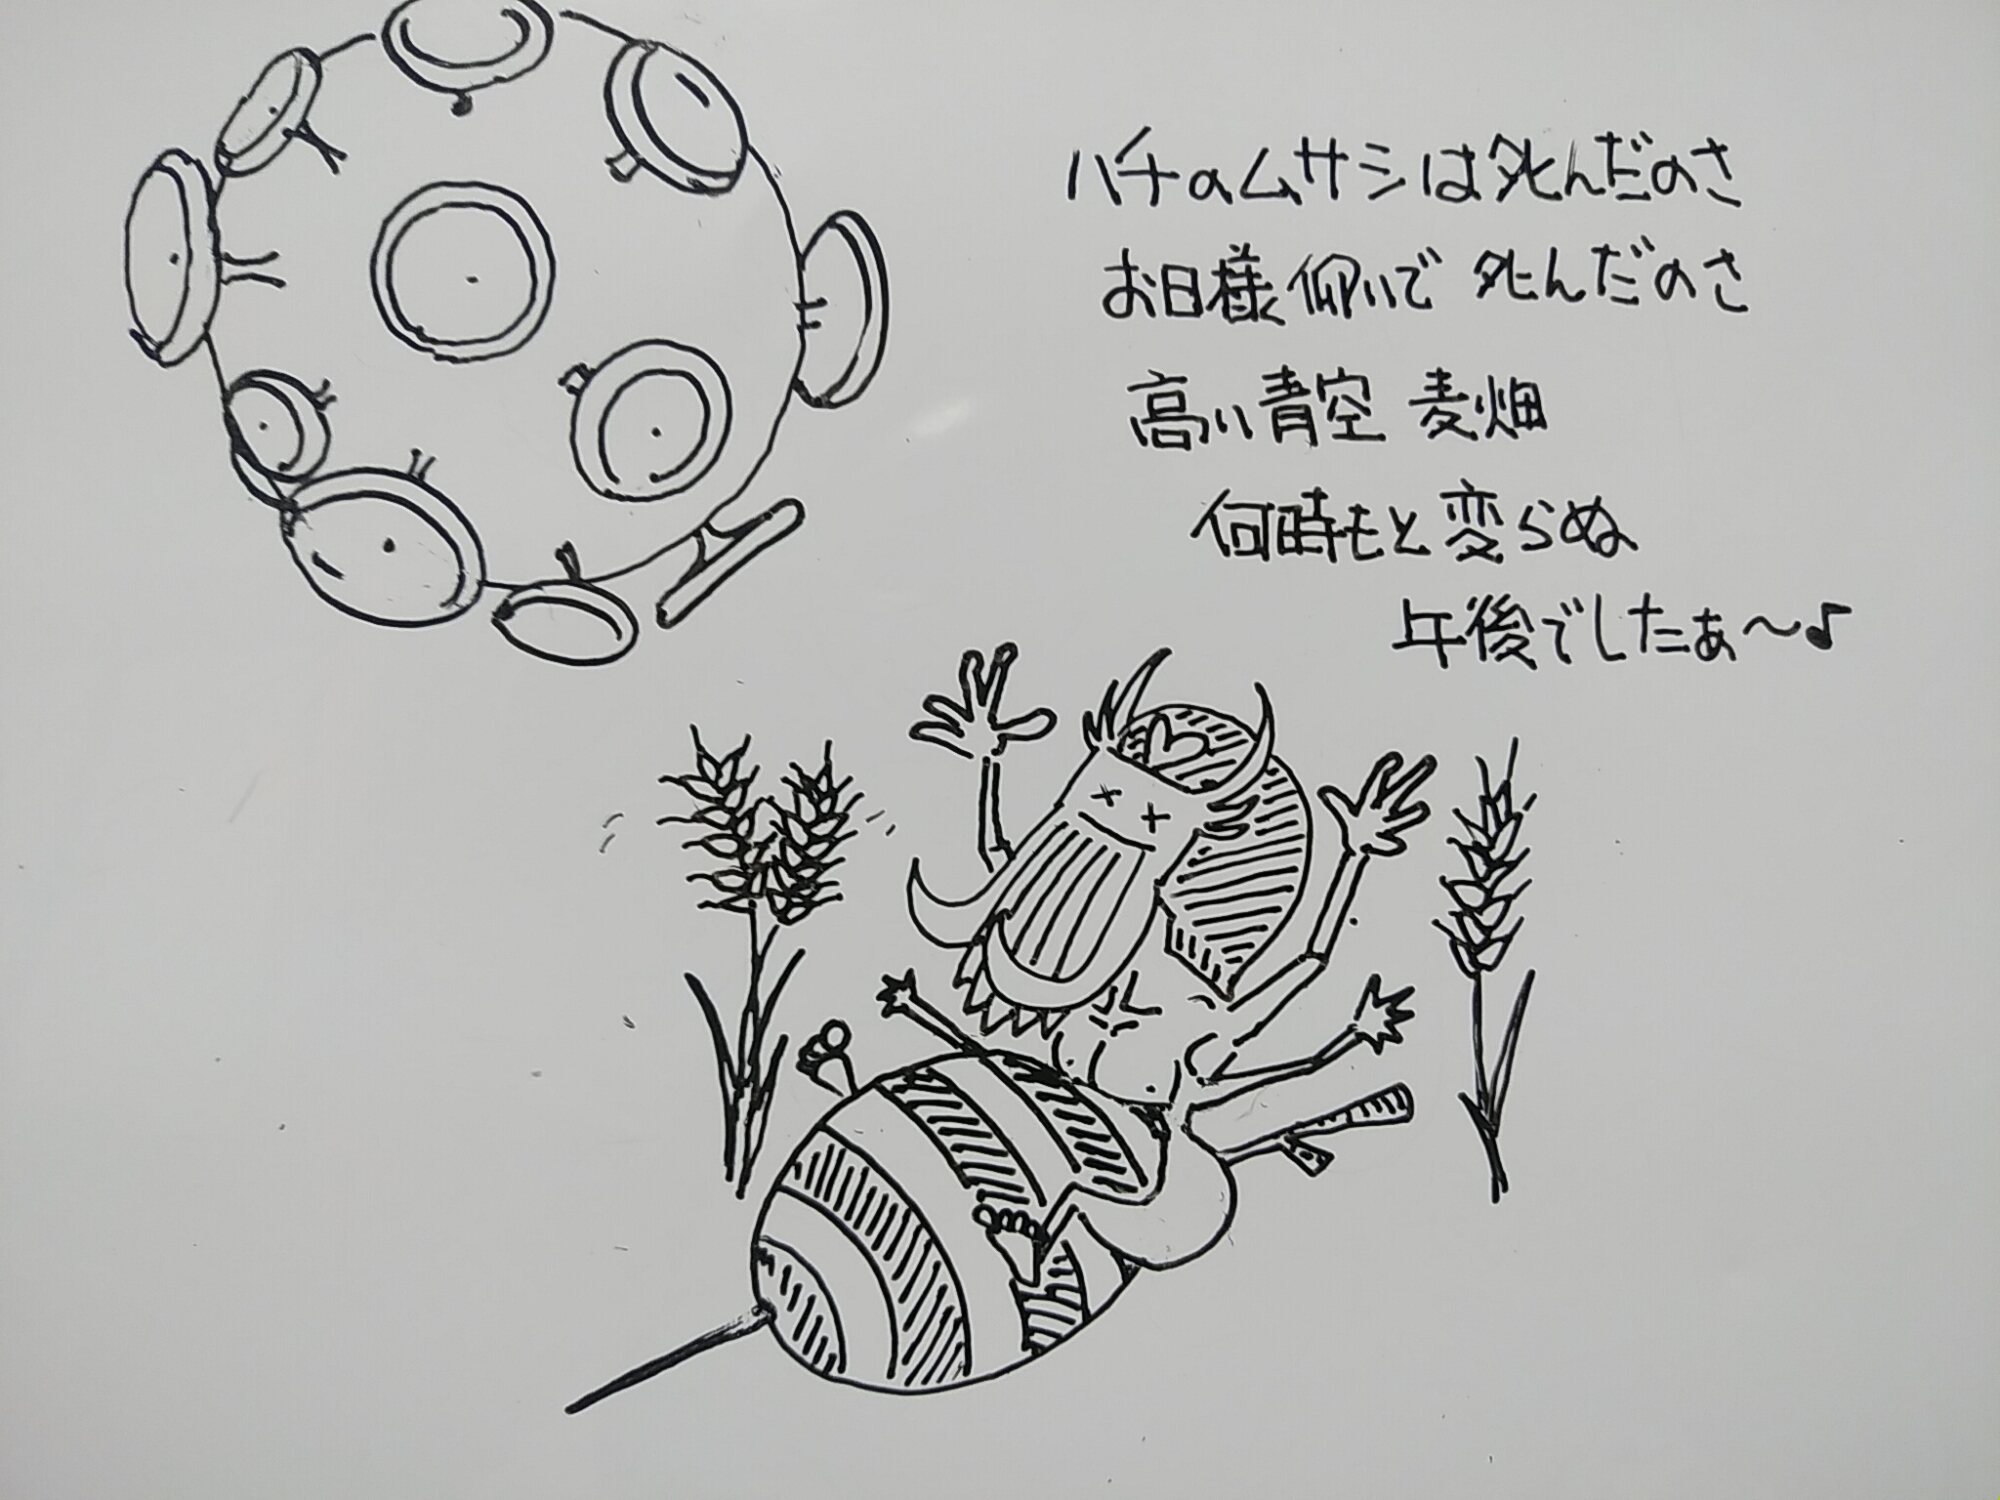 ハチのムサシは死んだのさ
お日様仰いで 死んだのさ
高い青空 麦畑
何時もと変らぬ
午後でしたぁ～♪